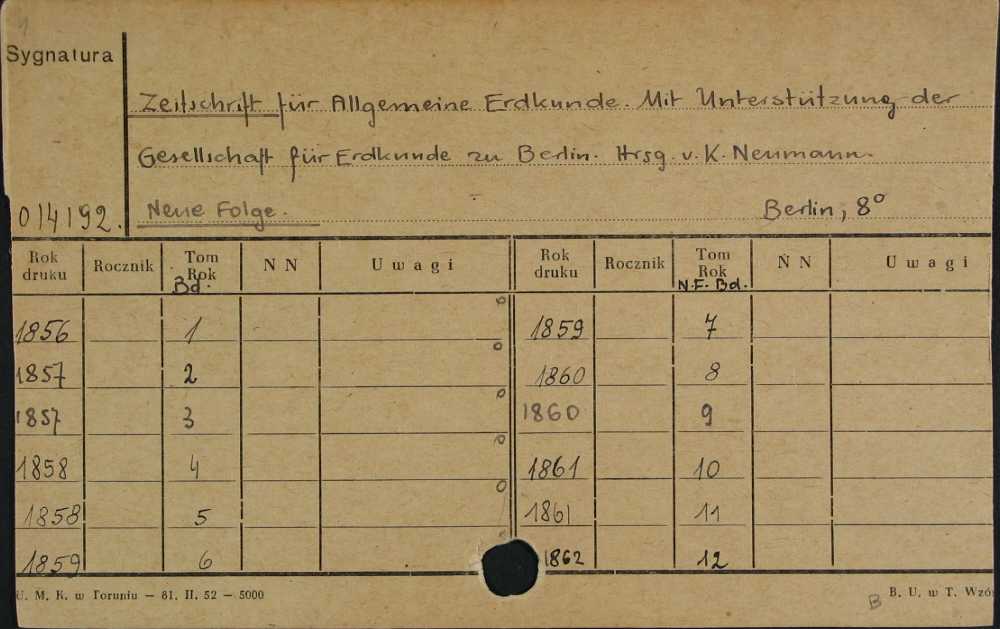 1
Sygnatura
Zeitschrift für Allgemeine Erdkunde. Mit Unterstützung der
Gesellschaft für Erdkunde zu Berlin. Hrsg. v. K. Neumann.
014192. Neue Folge. Berlin, 8°
Rok druku Rocznik Tom Rok Bd. N N Uwagi Rok druku Rocznik Tom Rok N.F. Bd. N N Uwagi
1856 1 1859 7
1857 2 1860 8
1857 3 1860 9
1858 4 1861 10
1858 5 1861 11
1859 6 1862 12
U. M. K. w Toruniu — 61. II. 52 — 5000 B B. U. w T. Wzó